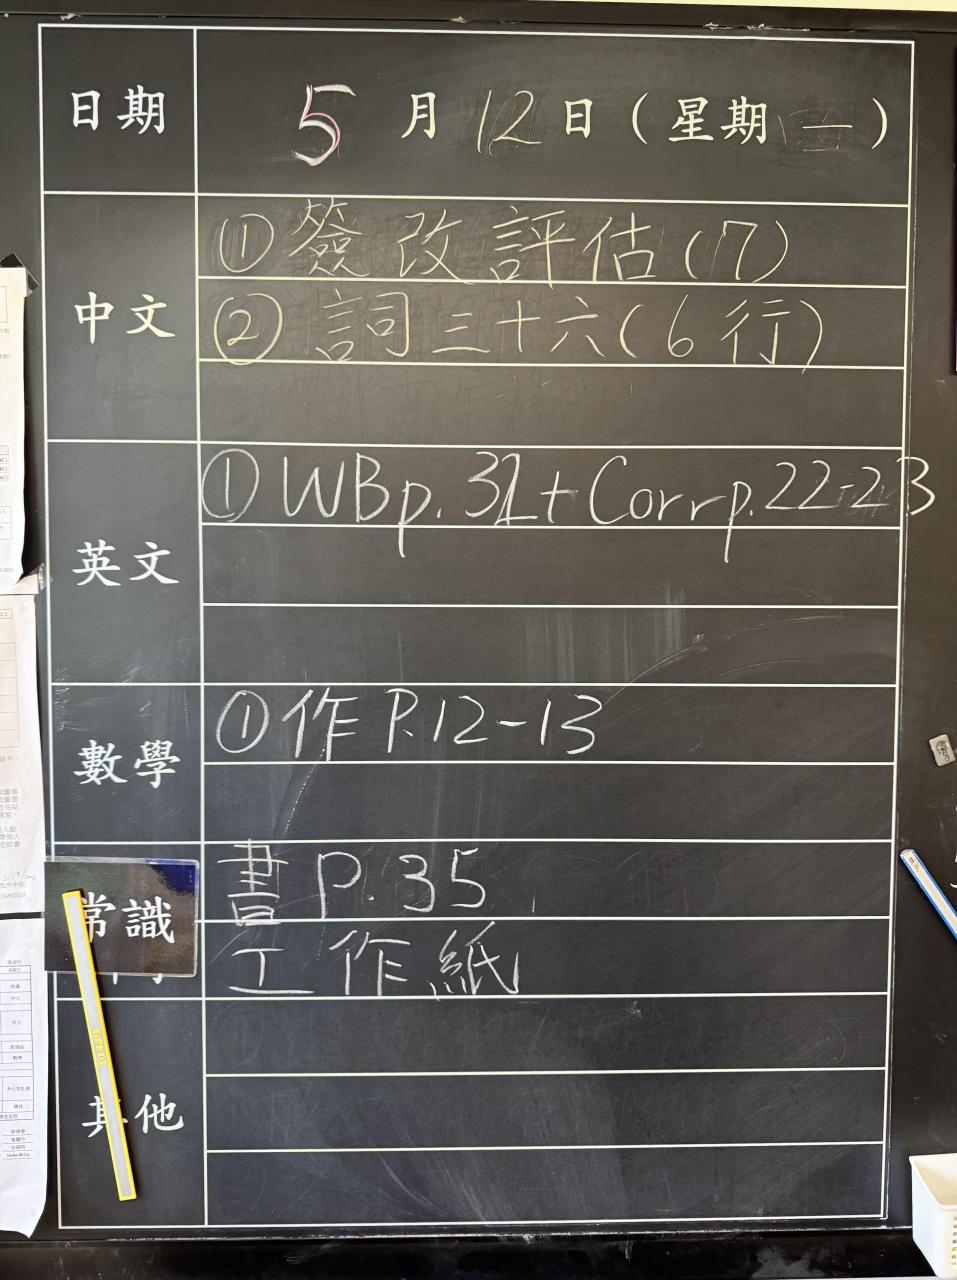 日期 5月12日(星期一)
中文
①簽改評估(7)
②詞三十六(6行)
英文
①WBp.31+Corrp.22-23
數學
①作P.12-13
常識
書P.35
工作紙
其他